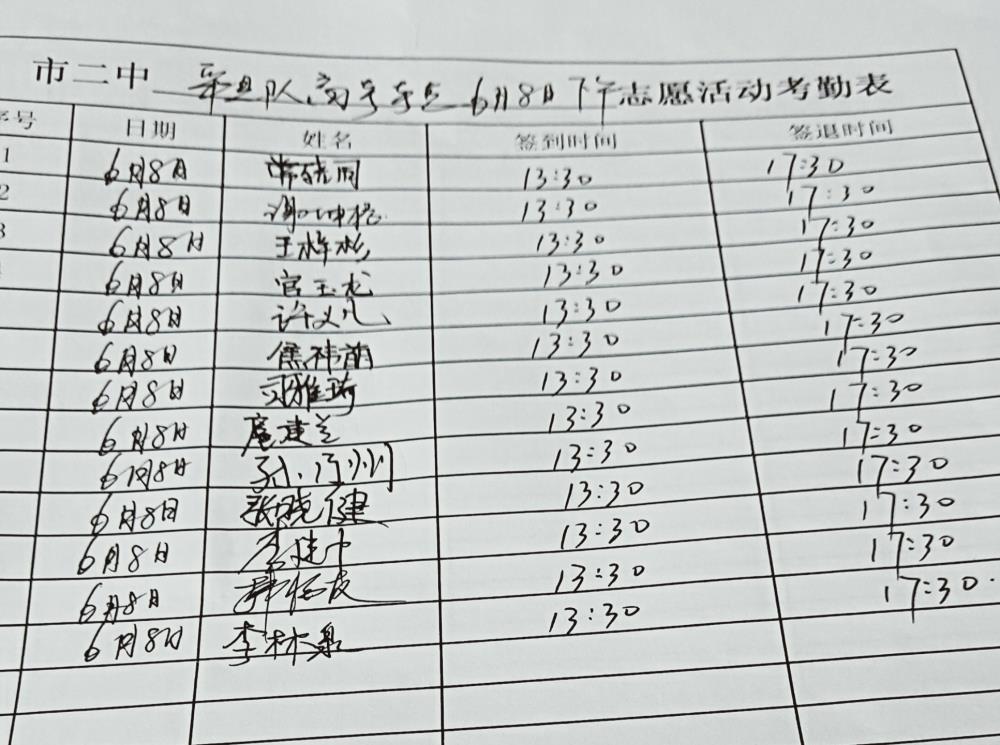 市二中 队 6月8日下午志愿活动考勤表
序号 日期 姓名 签到时间 签退时间
1 6月8日 13:30 17:30
2 6月8日 13:30 17:30
3 6月8日 王梓杉 13:30 17:30
6月8日 官玉龙 13:30 17:30
6月8日 许义凡 13:30 17:30
6月8日 焦祥韵 13:30 17:30
6月8日 雅琦 13:30 17:30
6月8日 建兰 13:30 17:30
6月8日 13:30 17:30
6月8日 张晓健 13:30 17:30
6月8日 13:30 17:30
6月8日 13:30 17:30
6月8日 李林泉 13:30 17:30